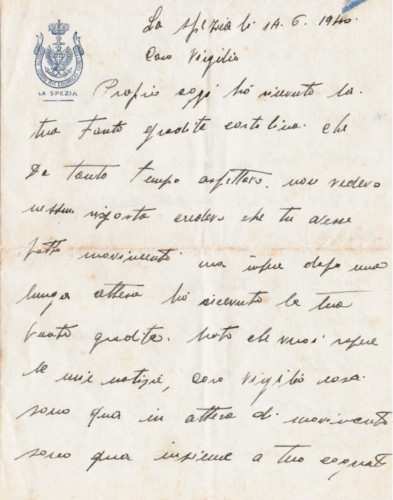 La Spezia li 14. 6. 1940.
LA SPEZIA
Caro Virgilio
Proprio oggi hò ricevuto la
tua tanto gradita cartolina. che
Da tanto tempo aspettavo. non vedevo
nessun risposta credevo che tu avesse
fatto movimento ma infine dopo una
lunga attesa hò ricevuto la tua
tanto gradita. Noto che vuoi sapere
le mie notizie, caro Virgilio cosa
sono qua in attesa di movimento
sono qua insieme a tuo cognato